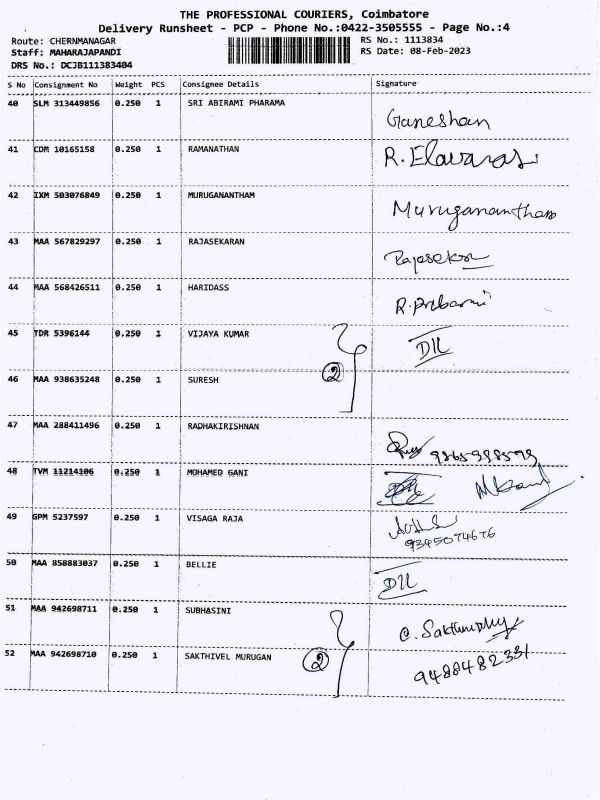 THE PROFESSIONAL COURIERS, Coimbatore
Delivery Runsheet - PCP - Phone No.:0422-3505555 - Page No.:4
Route: CHERNMANAGAR RS No.: 1113834
Staff: MAHARAJAPANDI RS Date: 08-Feb-2023
DRS No.: DCJB111383404
S No Consignment No Weight PCS Consignee Details Signature
40 SLM 313449856 0.250 1 SRI ABIRAMI PHARAMA Ganeshan
41 CDM 10165158 0.250 1 RAMANATHAN R. Elavaras
42 IXM 503076849 0.250 1 MURUGANANTHAM Muruganantham
43 MAA 567829297 0.250 1 RAJASEKARAN Rajasekar
44 MAA 568426511 0.250 1 HARIDASS
45 TDR 5396144 0.250 1 VIJAYA KUMAR DIL
2
46 MAA 938635248 0.250 1 SURESH
47 MAA 288411496 0.250 1 RADHAKIRISHNAN
48 TVM 11214106 0.250 1 MOHAMED GANI
49 GPM 5237597 0.250 1 VISAGA RAJA
9345074676
50 MAA 858883037 0.250 1 BELLIE DIL
51 MAA 942698711 0.250 1 SUBHASINI
52 MAA 942698710 0.250 1 SAKTHIVEL MURUGAN 2 9488482331